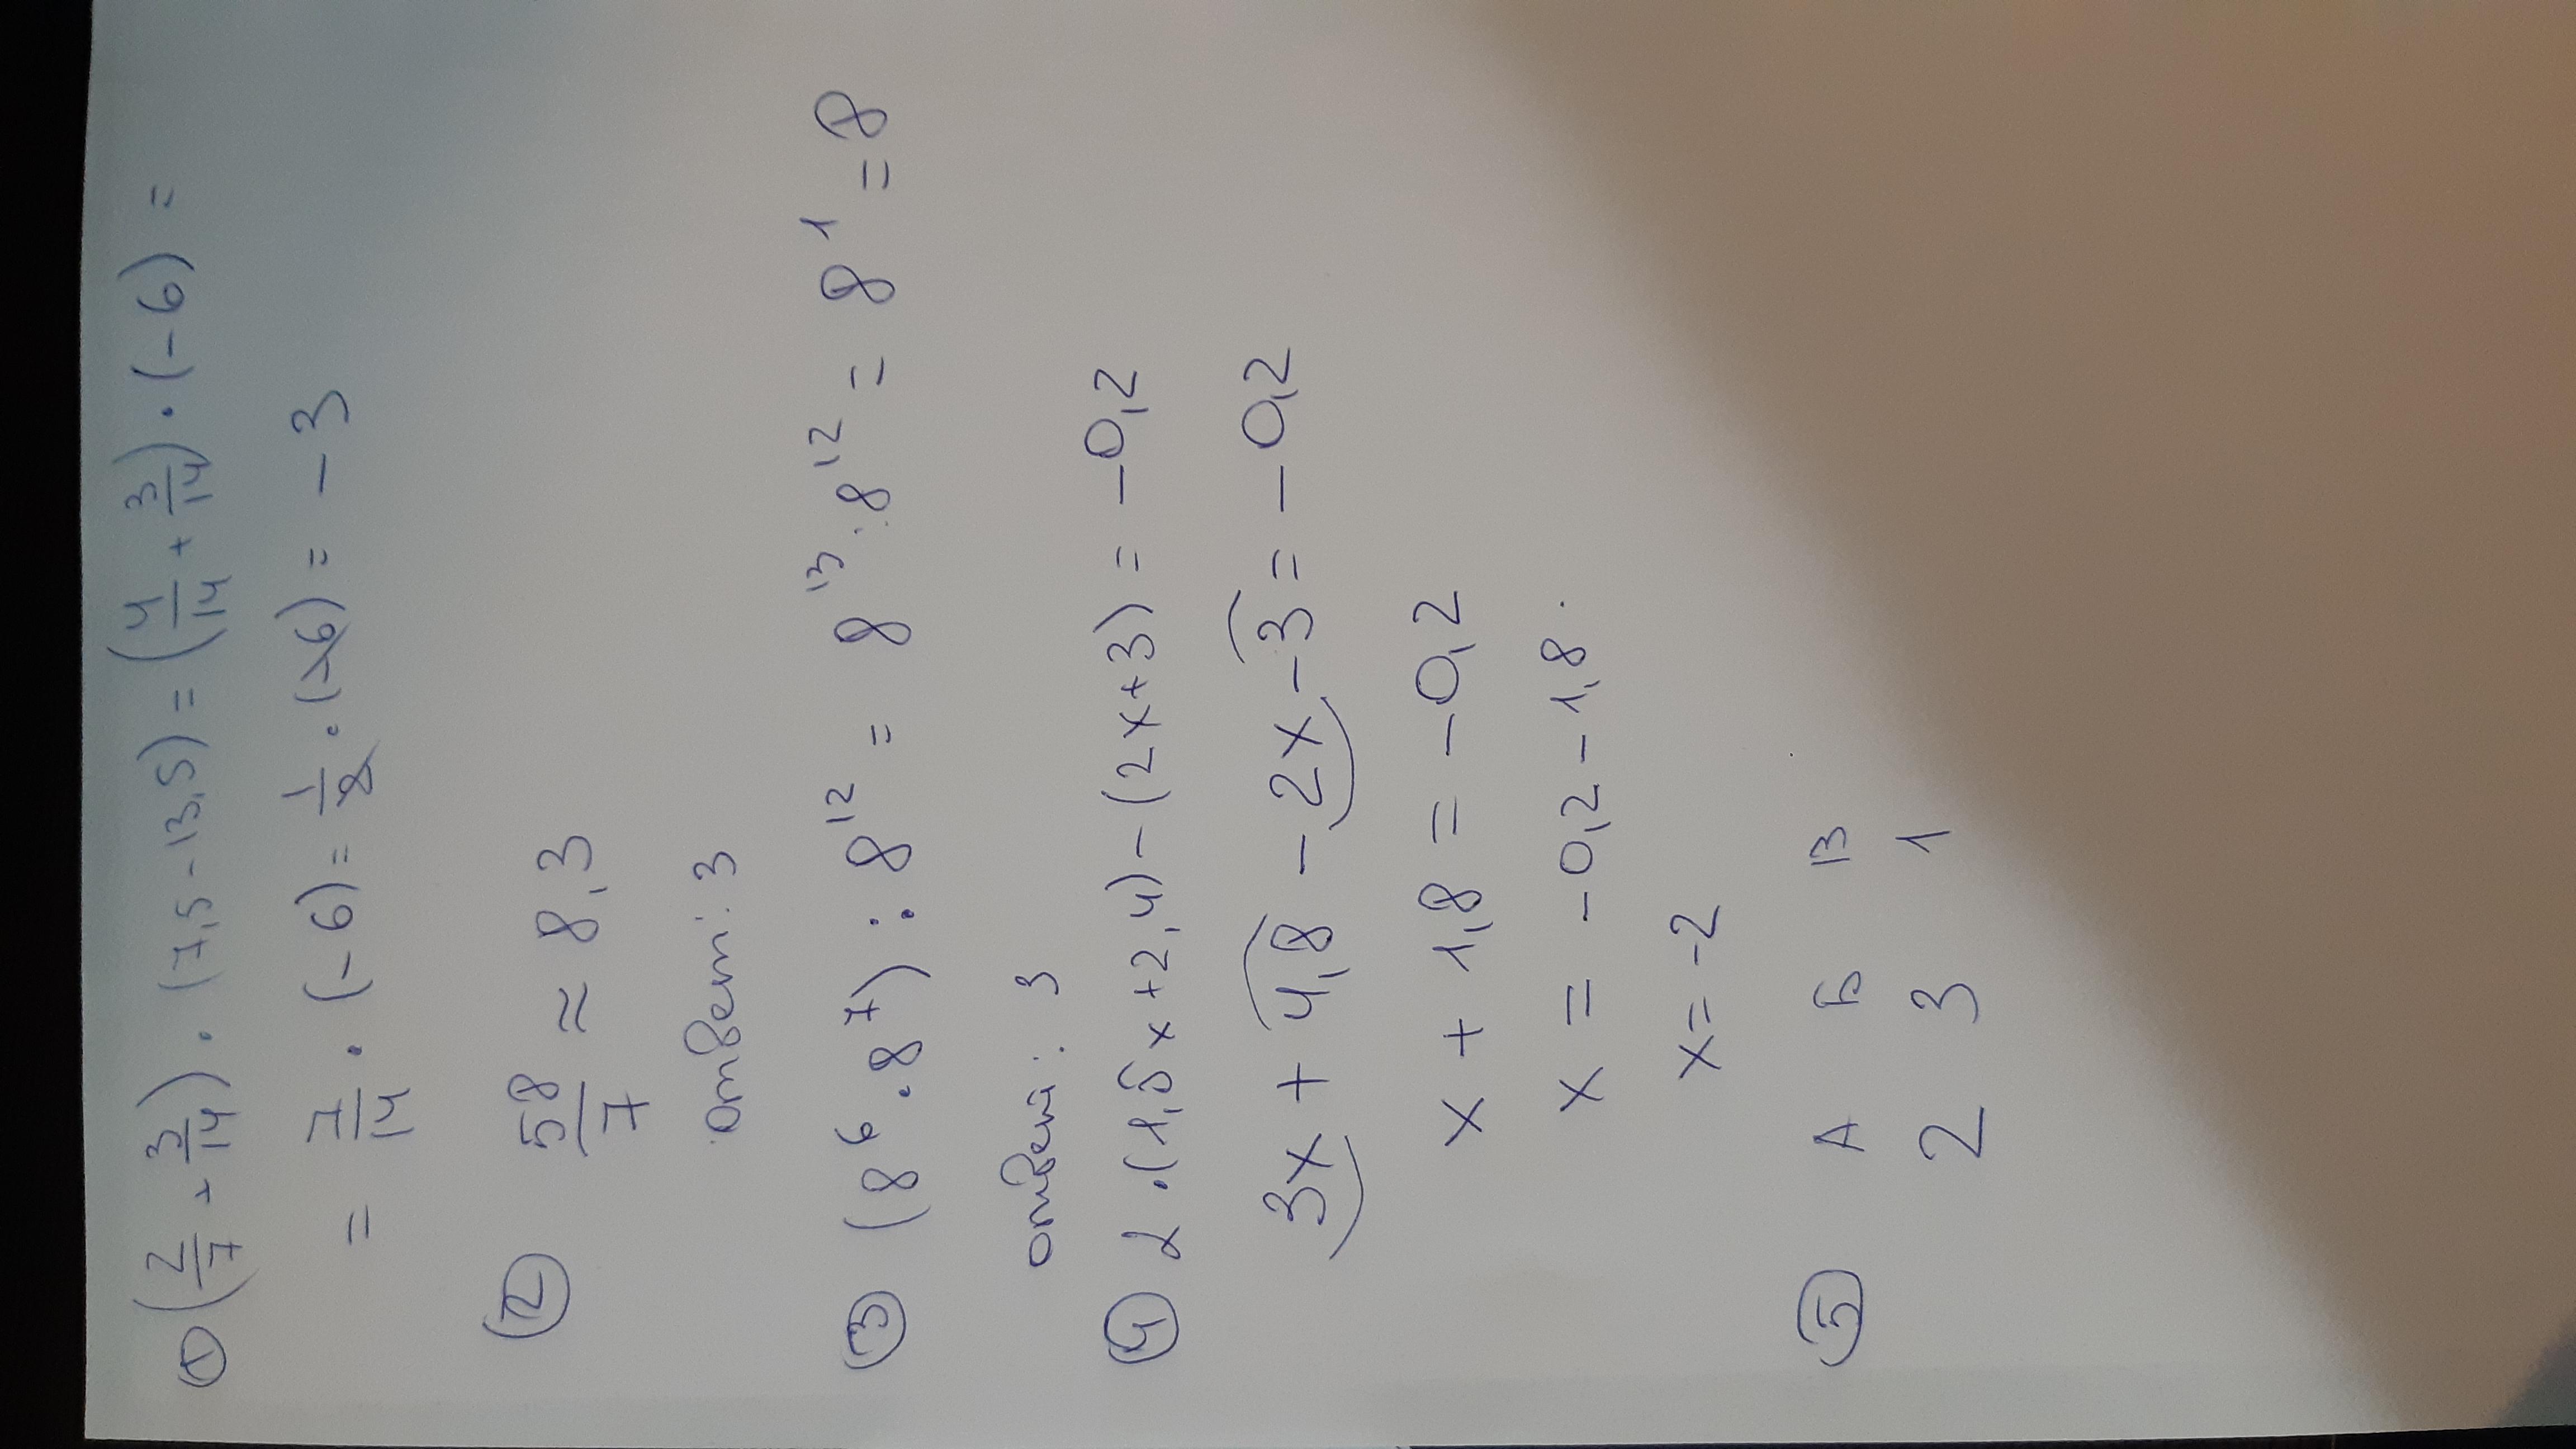 ① (2/7 + 3/14) · (7,5 - 13,5) = (4/14 + 3/14) · (-6) =
= 7/14 · (-6) = 1/2 · (-6) = -3
② 58/7 ≈ 8,3
ответ: 3
③ (8⁶ · 8⁷) : 8¹² = 8¹³ : 8¹² = 8¹ = 8
ответ: 3
④ 2 · (1,5x + 2,4) - (2x + 3) = -0,2
3x + 4,8 - 2x - 3 = -0,2
x + 1,8 = -0,2
x = -0,2 - 1,8
x = -2
⑤ А Б В
2 3 1